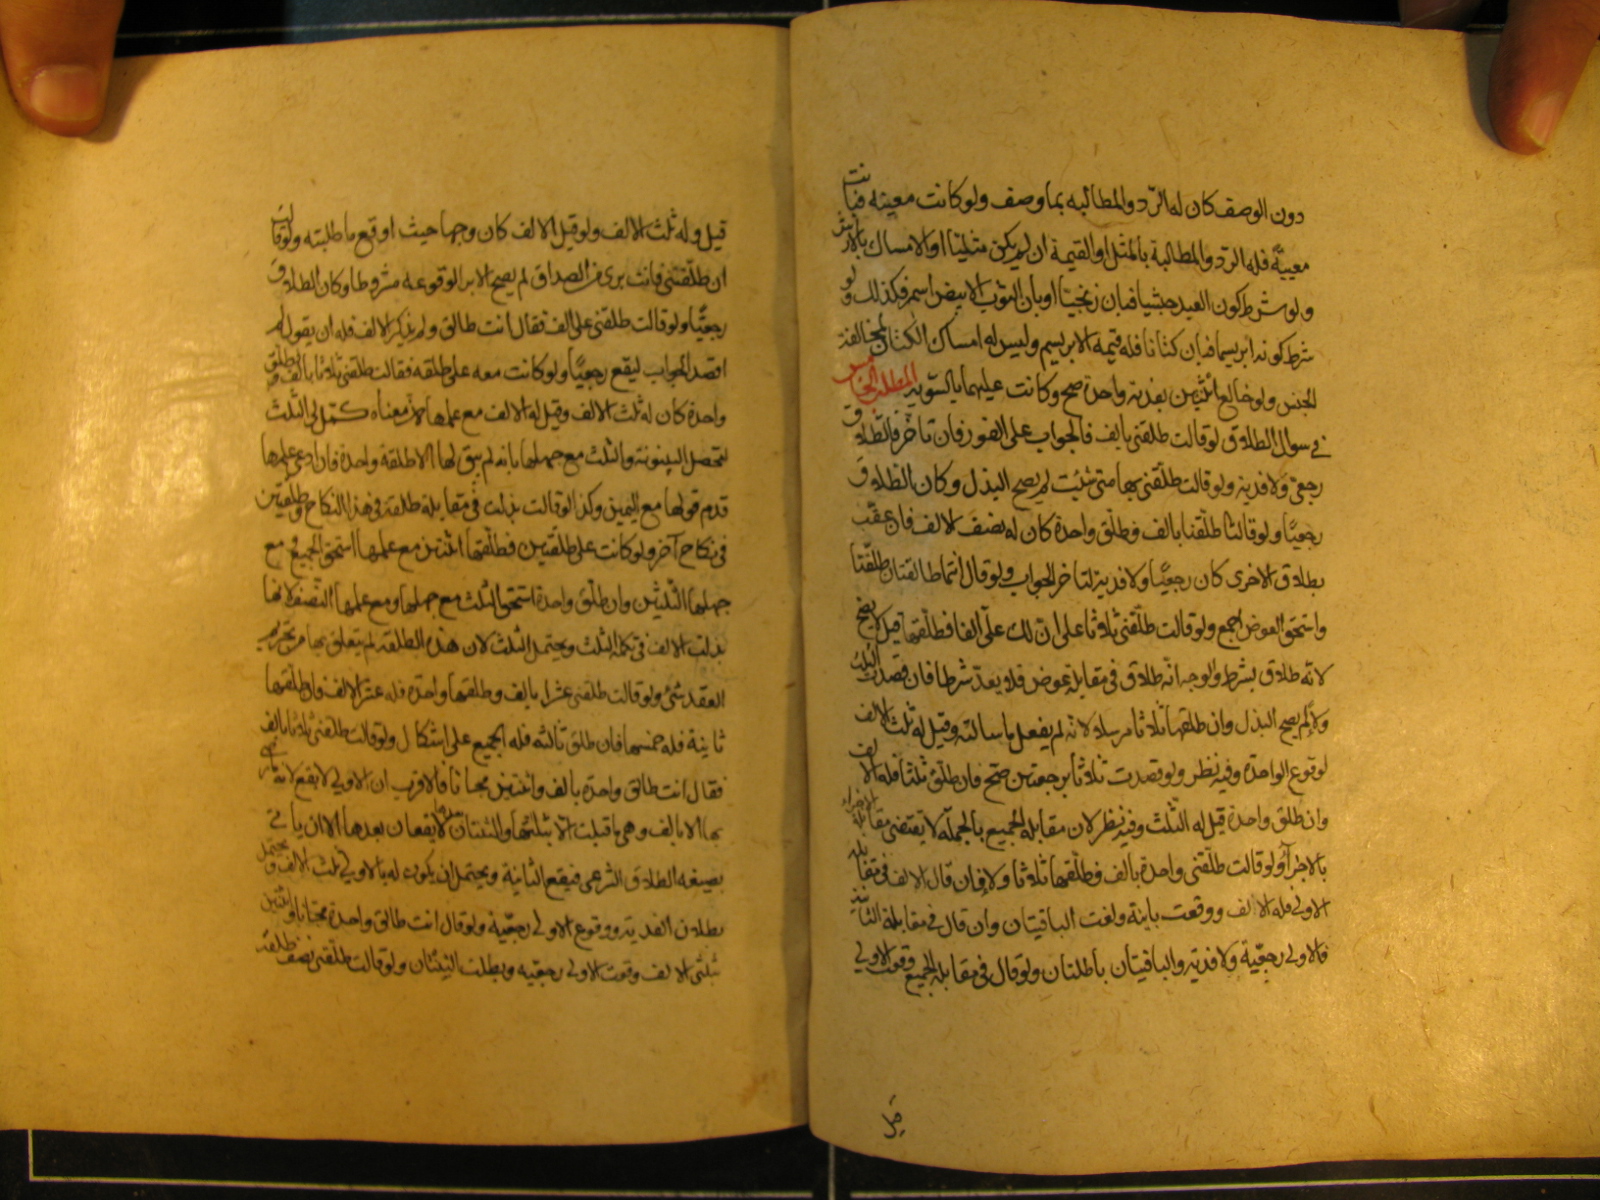 دون الوصف كان له الردّ والمطالبه بما وصف ولو كانت معينه فبانت
معيبةً فله الردّ والمطالبة بالمثل او القيمة ان لم يكن مثليّا او الامساك بالارش
ولو شرط كون العبد حبشيا فبان زنجيّا او بان الثوب الابيض اسمر فكذلك ولو
شرط كونه ابريسما فبان كتانا فله قيمة الابريسم وليس له امساك الكتان لمخالفة
الجنس ولو خالع اثنتين بفدية واحدة صح وكانت عليهما بالسّوية المطلب الخامس
في سوال الطلاق لو قالت طلقني بالف فالجواب على الفور فان تاخّر فالطلاق
رجعيّ ولا فدية ولو قالت طلّقني بها متى شئت لم يصح البذل وكان الطلاق
رجعيّا ولو قالتا طلّقنا بالف فطلّق واحدة كان له نصف الالف فان عقّب
بطلاق الاخرى كان رجعيّا ولا فدية لتاخر الجواب ولو قال انتما طالقتان طلقتا
واستحق العوض اجمع ولو قالت طلّقني ثلاثا على انّ لك علّى الفا فطلّقها قيل لا يصحّ
لانه طلاق بشرط والوجه انّه طلاق في مقابلة عوض فلا يعدّ شرطا فان قصدت الثلث
ولاءً لم يصح البذل وان طلقها ثلاثا مرسلا لانّه لم يفعل ما سالته وقيل له ثلث الالف
لوقوع الواحدة وفيه نظر ولو قصدت ثلاثا برجعتين صحّ فان طلّق ثلثا فله الالف
وان طلق واحدة قيل له الثلث وفيه نظر لان مقابله الجميع بالجملة لا يقتضى مقابلة الاجزاء
بالاجزاء ولو قالت طلّقني واحدة بالف فطلّقها ثلاثا ولاء فان قال الالف في مقابله
الاولى فله الالف ووقعت باينة ولغت الباقيتان وان قال في مقابلة الثانية
فالاولى رجعيّة ولا فدية والباقيتان باطلتان ولو قال في مقابلة الجميع وقعت الاولى
قيل وله ثلث الالف ولو قيل الالف كان وجها حيث اوقع ما طلبته ولو قالت
ان طلّقتني فانت برى من الصداق لم يصح الابرا لوقوعه مشروطا وكان الطلاق
رجعيّا ولو قالت طلقني على الف فقال انت طالق ولم يذكر الالف فله ان يقول لم
اقصد الجواب ليقع رجعيّا ولو كانت معه على طلقه فقالت طلقني ثلاثا بالف فطلّق
واحدة كان له ثلث الالف وقيل له الالف مع علمها لانّ معناه كمّل لى الثلث
لتحصل البينونة والثلث مع جهلها بانه لم يبق لها الا طلقة واحدة فان ادعى علمها
قدم قولها مع اليمين وكذا لو قالت بذلت في مقابلة طلقة في هذا النكاح وطلقتين
في نكاح آخر ولو كانت على طلقتين فطلّقها اثنتين مع علمها استحق الجميع و مع
جهلها الثلثين وان طلّق واحدة استحق الثلث مع جهلها ومع علمها النصف لانها
بذلت الالف في تكملة الثلث ويحتمل الثلث لان هذه الطلقة لم يتعلق بها من تحريم
العقد شئ ولو قالت طلقني عشرا بالف وطلقها واحدة فله عشر الالف فان طلّقها
ثانية فله خمسها فان طلق ثالثه فله الجميع على اشكال ولو قالت طلقني ثلاثا بالف
فقال انت طالق واحدة بالف واثنتين مجانا فالاقرب ان الاولى لا يقع لانه
بها الا بالف وهي ما قبلت الّا بثلثها والثنتان بعدها لا يقعان بعدها الا ان ياتي
بصيغه الطلاق الشرعى فيقع الثانية ويحتمل ان يكون له بالاولى ثلث الالف ويحتمل
بطلان الفدية ووقوع الاولى رجعيّة ولو قال انت طالق واحدة مجانا واثنتين
بثلثى الالف وقعت الاولى رجعيّه وبطلت الثنتان ولو قالت طلّقني نصف طلقة